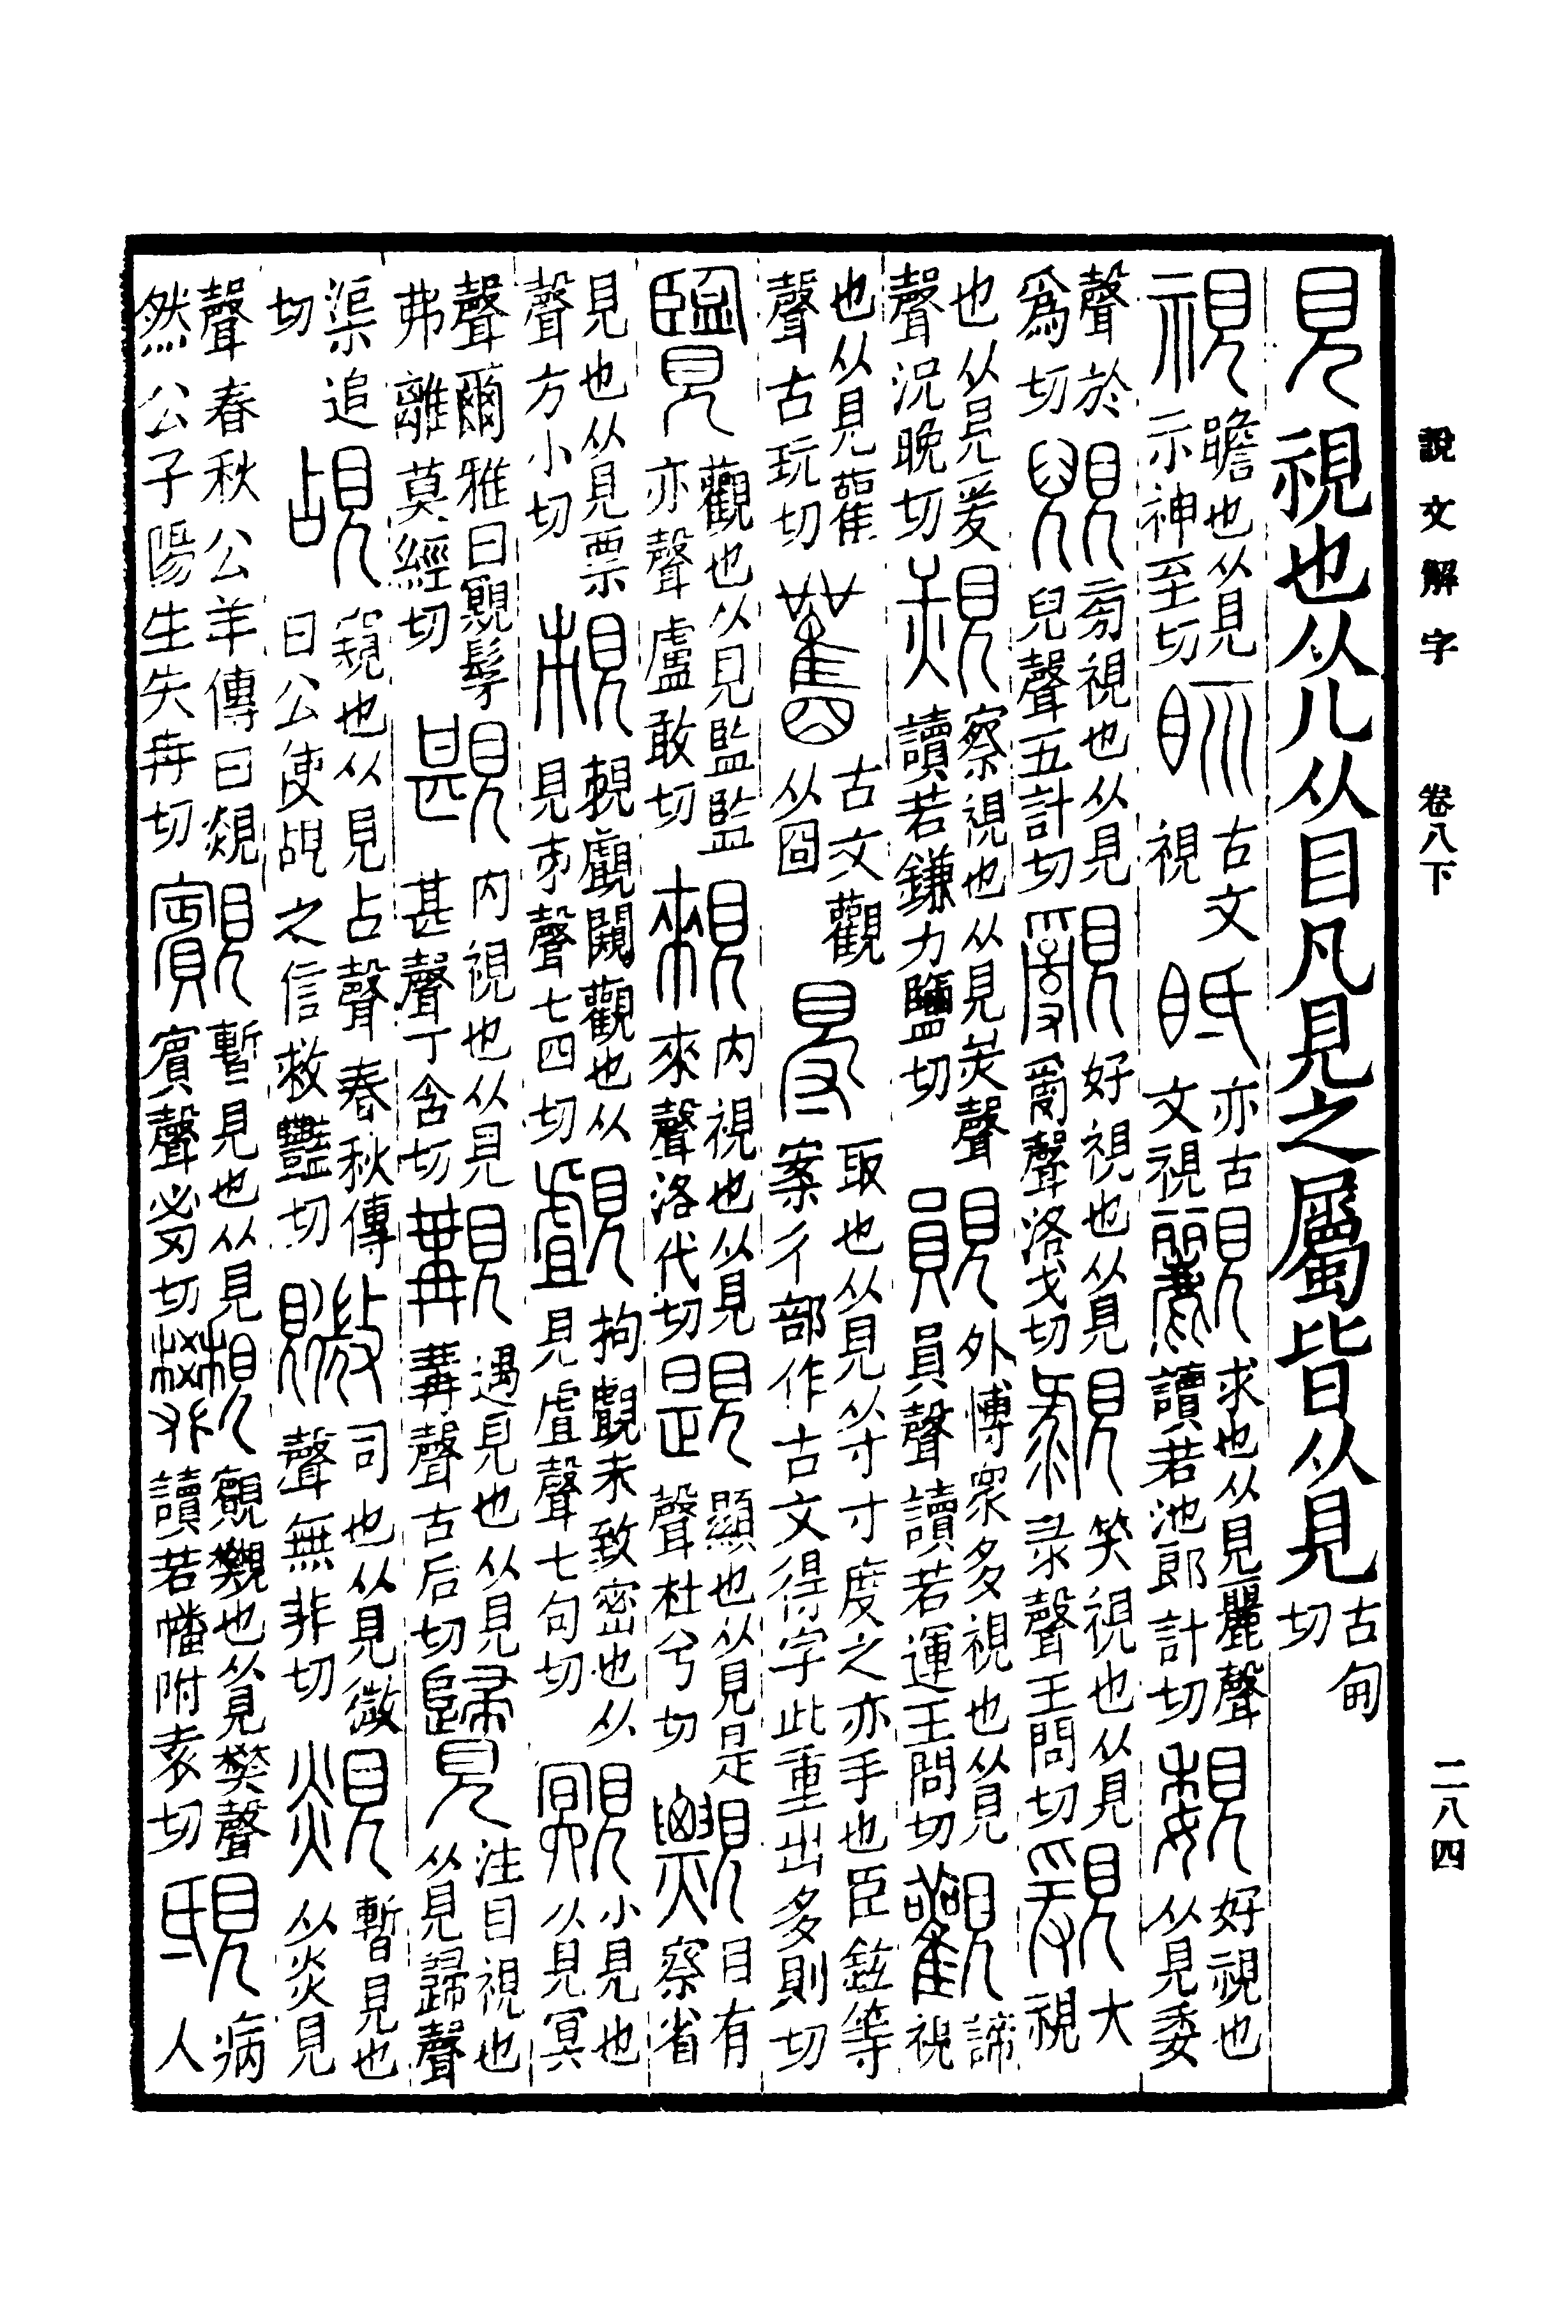 說文解字 卷八下 二八四
見視也从儿从目凡見之屬皆从見古甸切
視瞻也从見示神至切𥄚古文視眡亦古文視䚕求也从見麗聲讀若池郎計切覣好視也从見委
聲於爲切䘽旁視也从見兒聲五計切覶好視也从見𤔔聲洛戈切䚄笑視也从見录聲王問切大視
也从見爰聲況晚切覝察視也从見聲讀若鎌力鹽切䚋外博眾多視也从見員聲讀若運王問切觀諦視
也从見雚聲古玩切古文觀从囧㝵取也从見从寸寸度之亦手也臣鉉等案彳部作古文得字此重出多則切
覽觀也从見監監亦聲盧敢切䚅內視也从見來聲洛代切䚣顯也从見是聲杜兮切目有察省
見也从見票聲方小切覰闚觀也从見𠂔聲七四切覰拘覰未致密也从見虘聲七句切覭小見也从見冥
聲爾雅曰覭髳弗離莫經切內視也从見甚聲丁含切覯遇見也从見冓聲古后切注目視也从見歸聲
渠追切覘窺也从見占聲春秋傳曰公使覘之信救豔切覹司也从見微聲無非切覢暫見也从炎見
聲春秋公羊傳曰覢然公子陽生失冉切暫見也从見賓聲必刃切觀也从見樊聲讀若幡附袁切病人